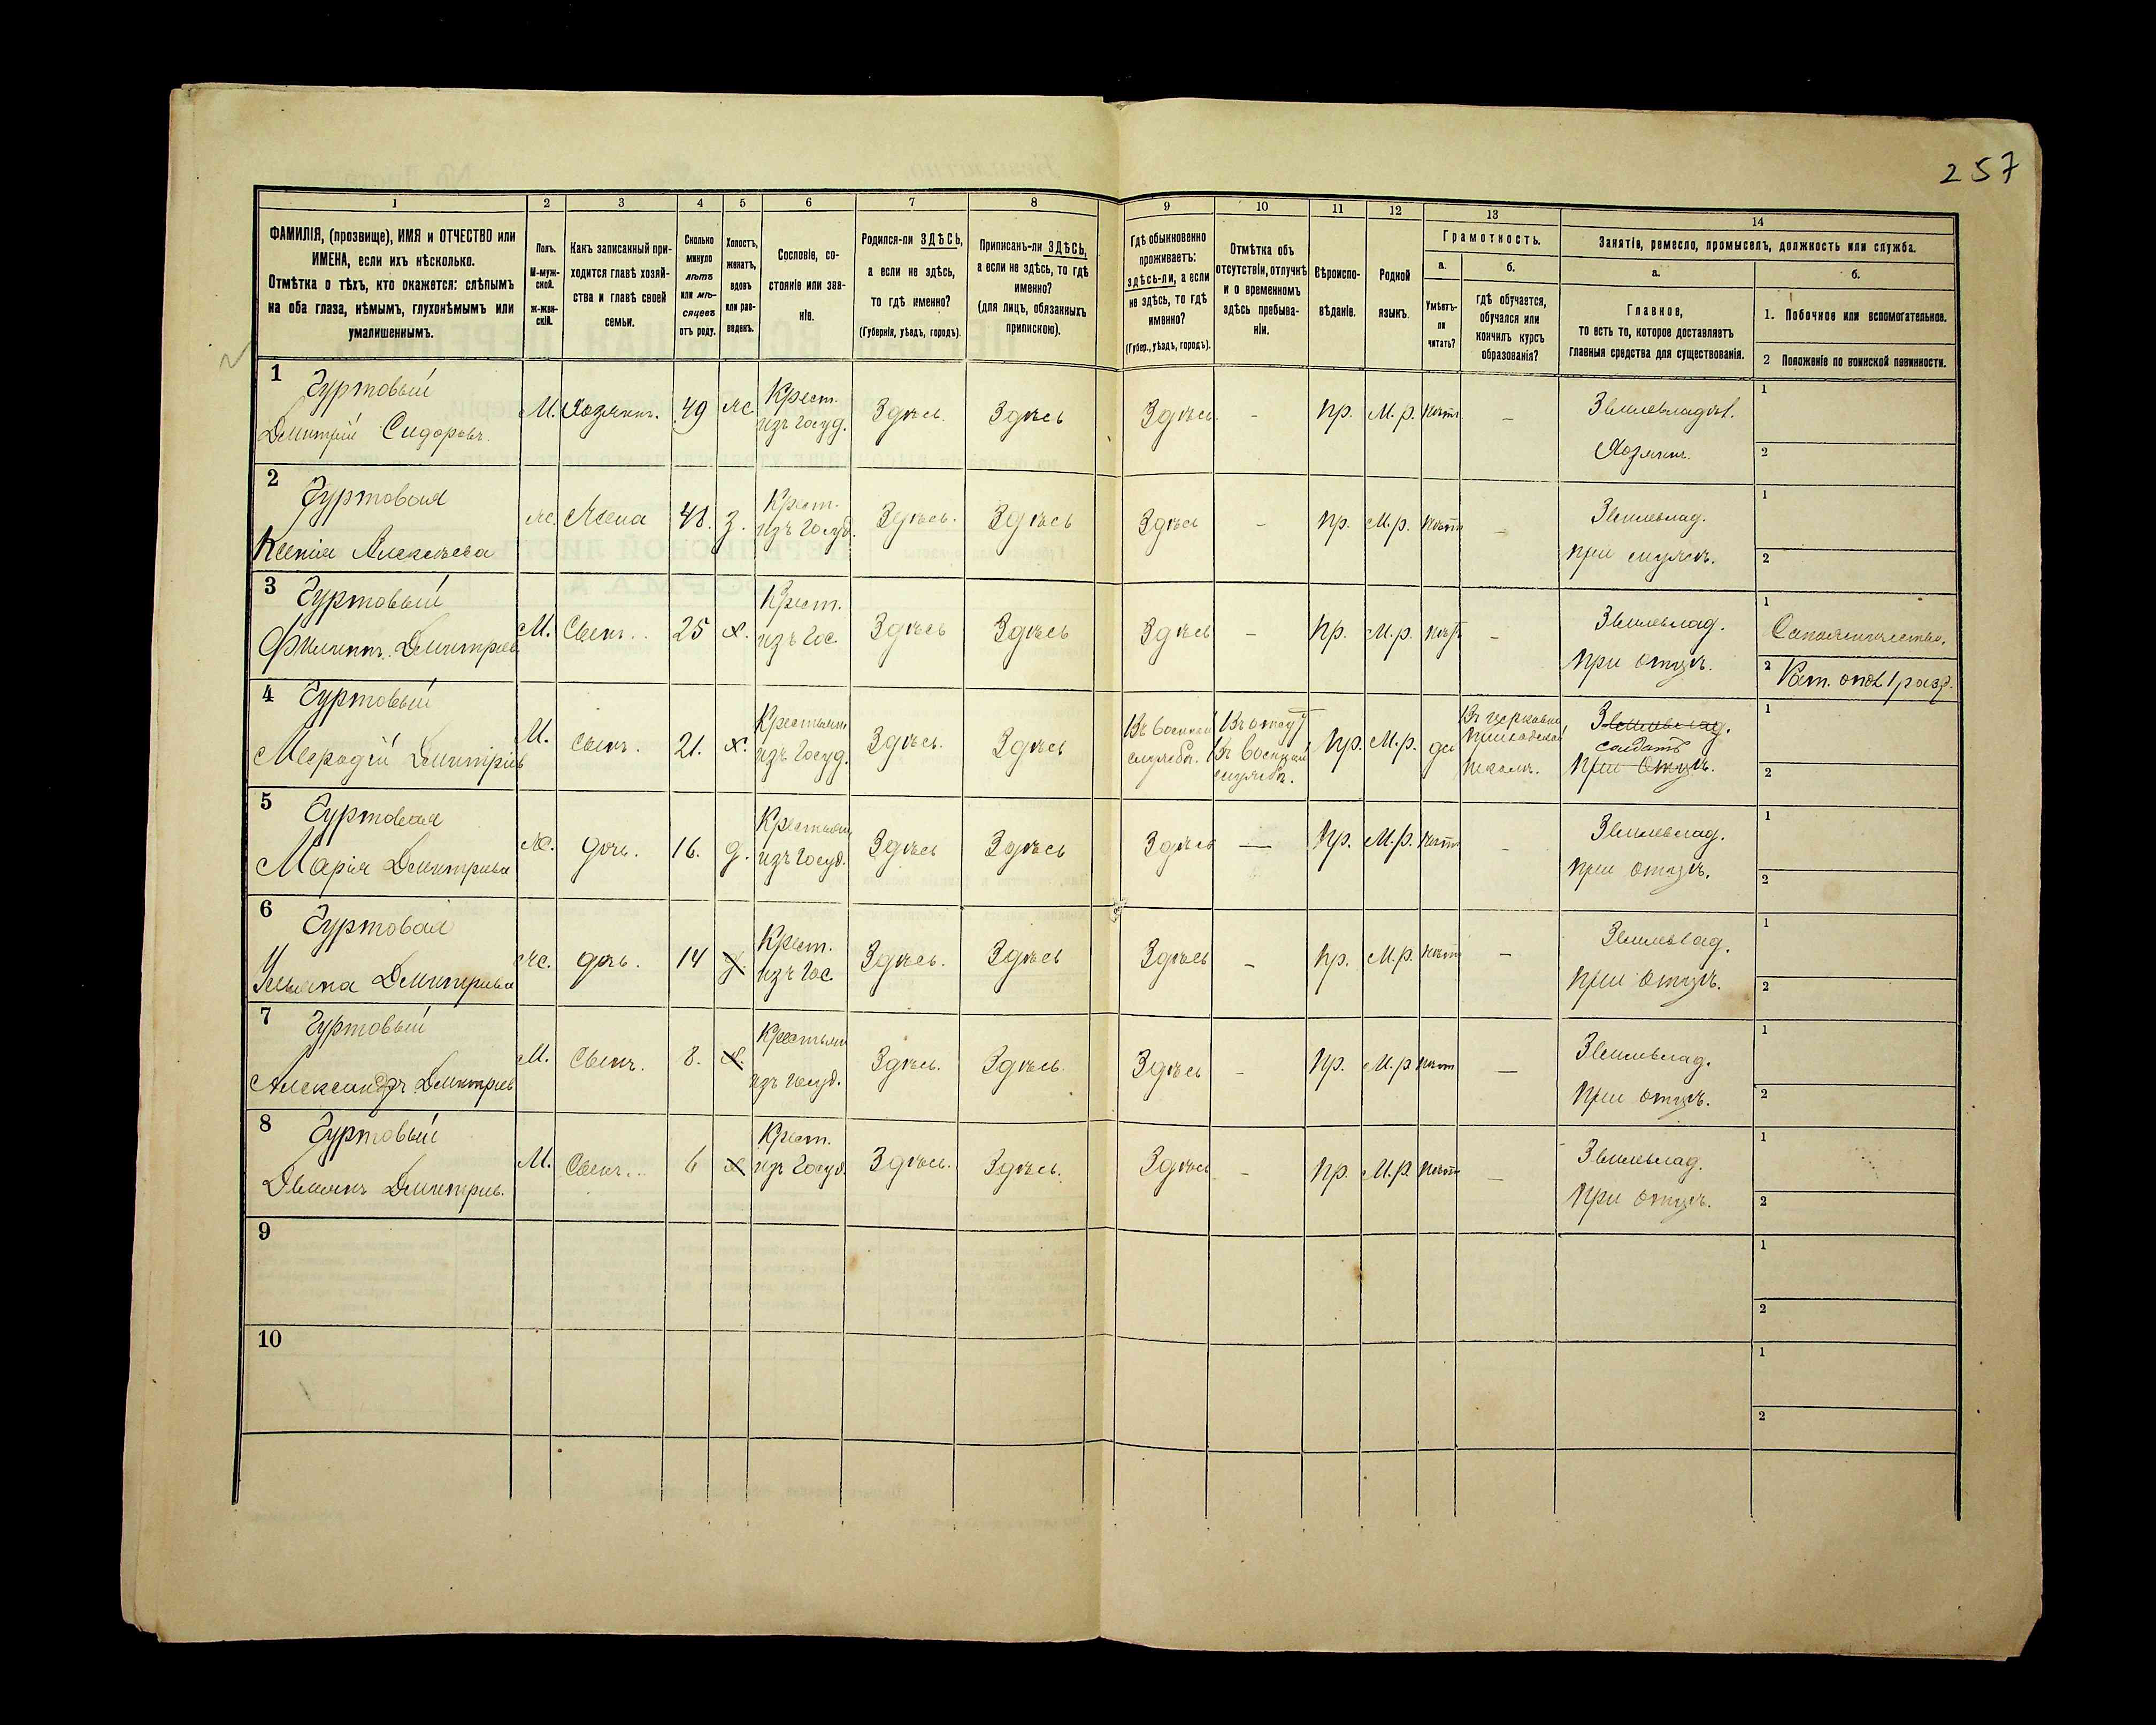 257
1
2
3
4
5
6
7
8
9
10
11
12
13
14
ФАМИЛІЯ, (прозвище), ИМЯ и ОТЧЕСТВО или
ИМЕНА, если ихъ нѣсколько.
Отмѣтка о тѣхъ, кто окажется: слѣпымъ
на оба глаза, нѣмымъ, глухонѣмымъ или
умалишеннымъ.
Полъ.
М-муж-
ской.
Ж-жен-
скій.
Какъ записанный при-
ходится главѣ хозяй-
ства и главѣ своей
семьи.
Сколько
минуло
лѣтъ
или мѣ-
сяцевъ
отъ роду.
Холостъ,
женатъ,
вдовъ
или раз-
веденъ.
Сословіе, со-
стояніе или зва-
ніе.
Родился-ли ЗДѢСЬ,
а если не здѣсь,
то гдѣ именно?
(Губернія, уѣздъ, городъ).
Приписанъ-ли ЗДѢСЬ,
а если не здѣсь, то гдѣ
именно?
(для лицъ, обязанныхъ
припискою).
Гдѣ обыкновенно
проживаетъ:
здѣсь-ли, а если
не здѣсь, то гдѣ
именно?
(Губер., уѣздъ, городъ).
Отмѣтка объ
отсутствіи, отлучкѣ
и о временномъ
здѣсь пребыва-
ніи.
Вѣроиспо-
вѣданіе.
Родной
языкъ.
Грамотность.
а.
б.
Умѣетъ-
ли
читать?
гдѣ обучается,
обучался или
кончилъ курсъ
образованія?
Занятіе, ремесло, промыселъ, должность или служба.
а.
б.
Главное,
то есть то, которое доставляетъ
главныя средства для существованія.
1. Побочное или вспомогательное.
2 Положеніе по воинской повинности.
1
Гуртовый
Дмитрій Сидоровъ.
М. Хозяинъ. 49 ж. Крест.
изъ госуд. Здѣсь. Здѣсь Здѣсь - пр. М. р. нѣтъ - Землевлад.
Хозяинъ.
1
2
2
Гуртовая
Ксенія Алексѣева
ж. Жена 48. з. Крест.
изъ госуд. Здѣсь. Здѣсь Здѣсь - пр. М. р. нѣтъ - Землевлад.
при мужѣ.
1
2
3
Гуртовый
Филиппъ Дмитріев
М. Сынъ. 25 х. Крест.
изъ гос Здѣсь Здѣсь Здѣсь - пр. М. р. нѣтъ - Землевлад.
при отцѣ.
1
2 Рат. опол. 1 разр.
4
Гуртовый
Мефодій Дмитріев
М. сынъ. 21. х. Крестьян
изъ госуд. Здѣсь. Здѣсь Въ военной
службѣ. Въ отсут
Въ военной
службѣ. пр. М. р. да Въ церковно
приходской
школѣ. Землевлад.
солдатъ
при отцѣ.
1
2
5
Гуртовая
Марія Дмитріева
ж. дочь. 16. д. Крестьян
изъ госуд. Здѣсь Здѣсь Здѣсь — пр. М. р. нѣтъ - Землевлад.
при отцѣ.
1
2
6
Гуртовая
Ульяна Дмитріева
ж. дочь. 14 д. Крест.
изъ гос Здѣсь. Здѣсь Здѣсь - пр. М. р. нѣтъ - Землевлад.
при отцѣ.
1
2
7
Гуртовый
Александръ Дмитріев
М. Сынъ. 8. х. Крестьян
изъ госуд. Здѣсь. Здѣсь. Здѣсь - пр. М. р нѣтъ — Землевлад.
при отцѣ.
1
2
8
Гуртовый
Демьянъ Дмитріев.
М. Сынъ. 6 х Крест.
изъ госуд. Здѣсь. Здѣсь. Здѣсь - пр. М. р. нѣтъ - Землевлад.
при отцѣ.
1
2
9
1
2
10
1
2